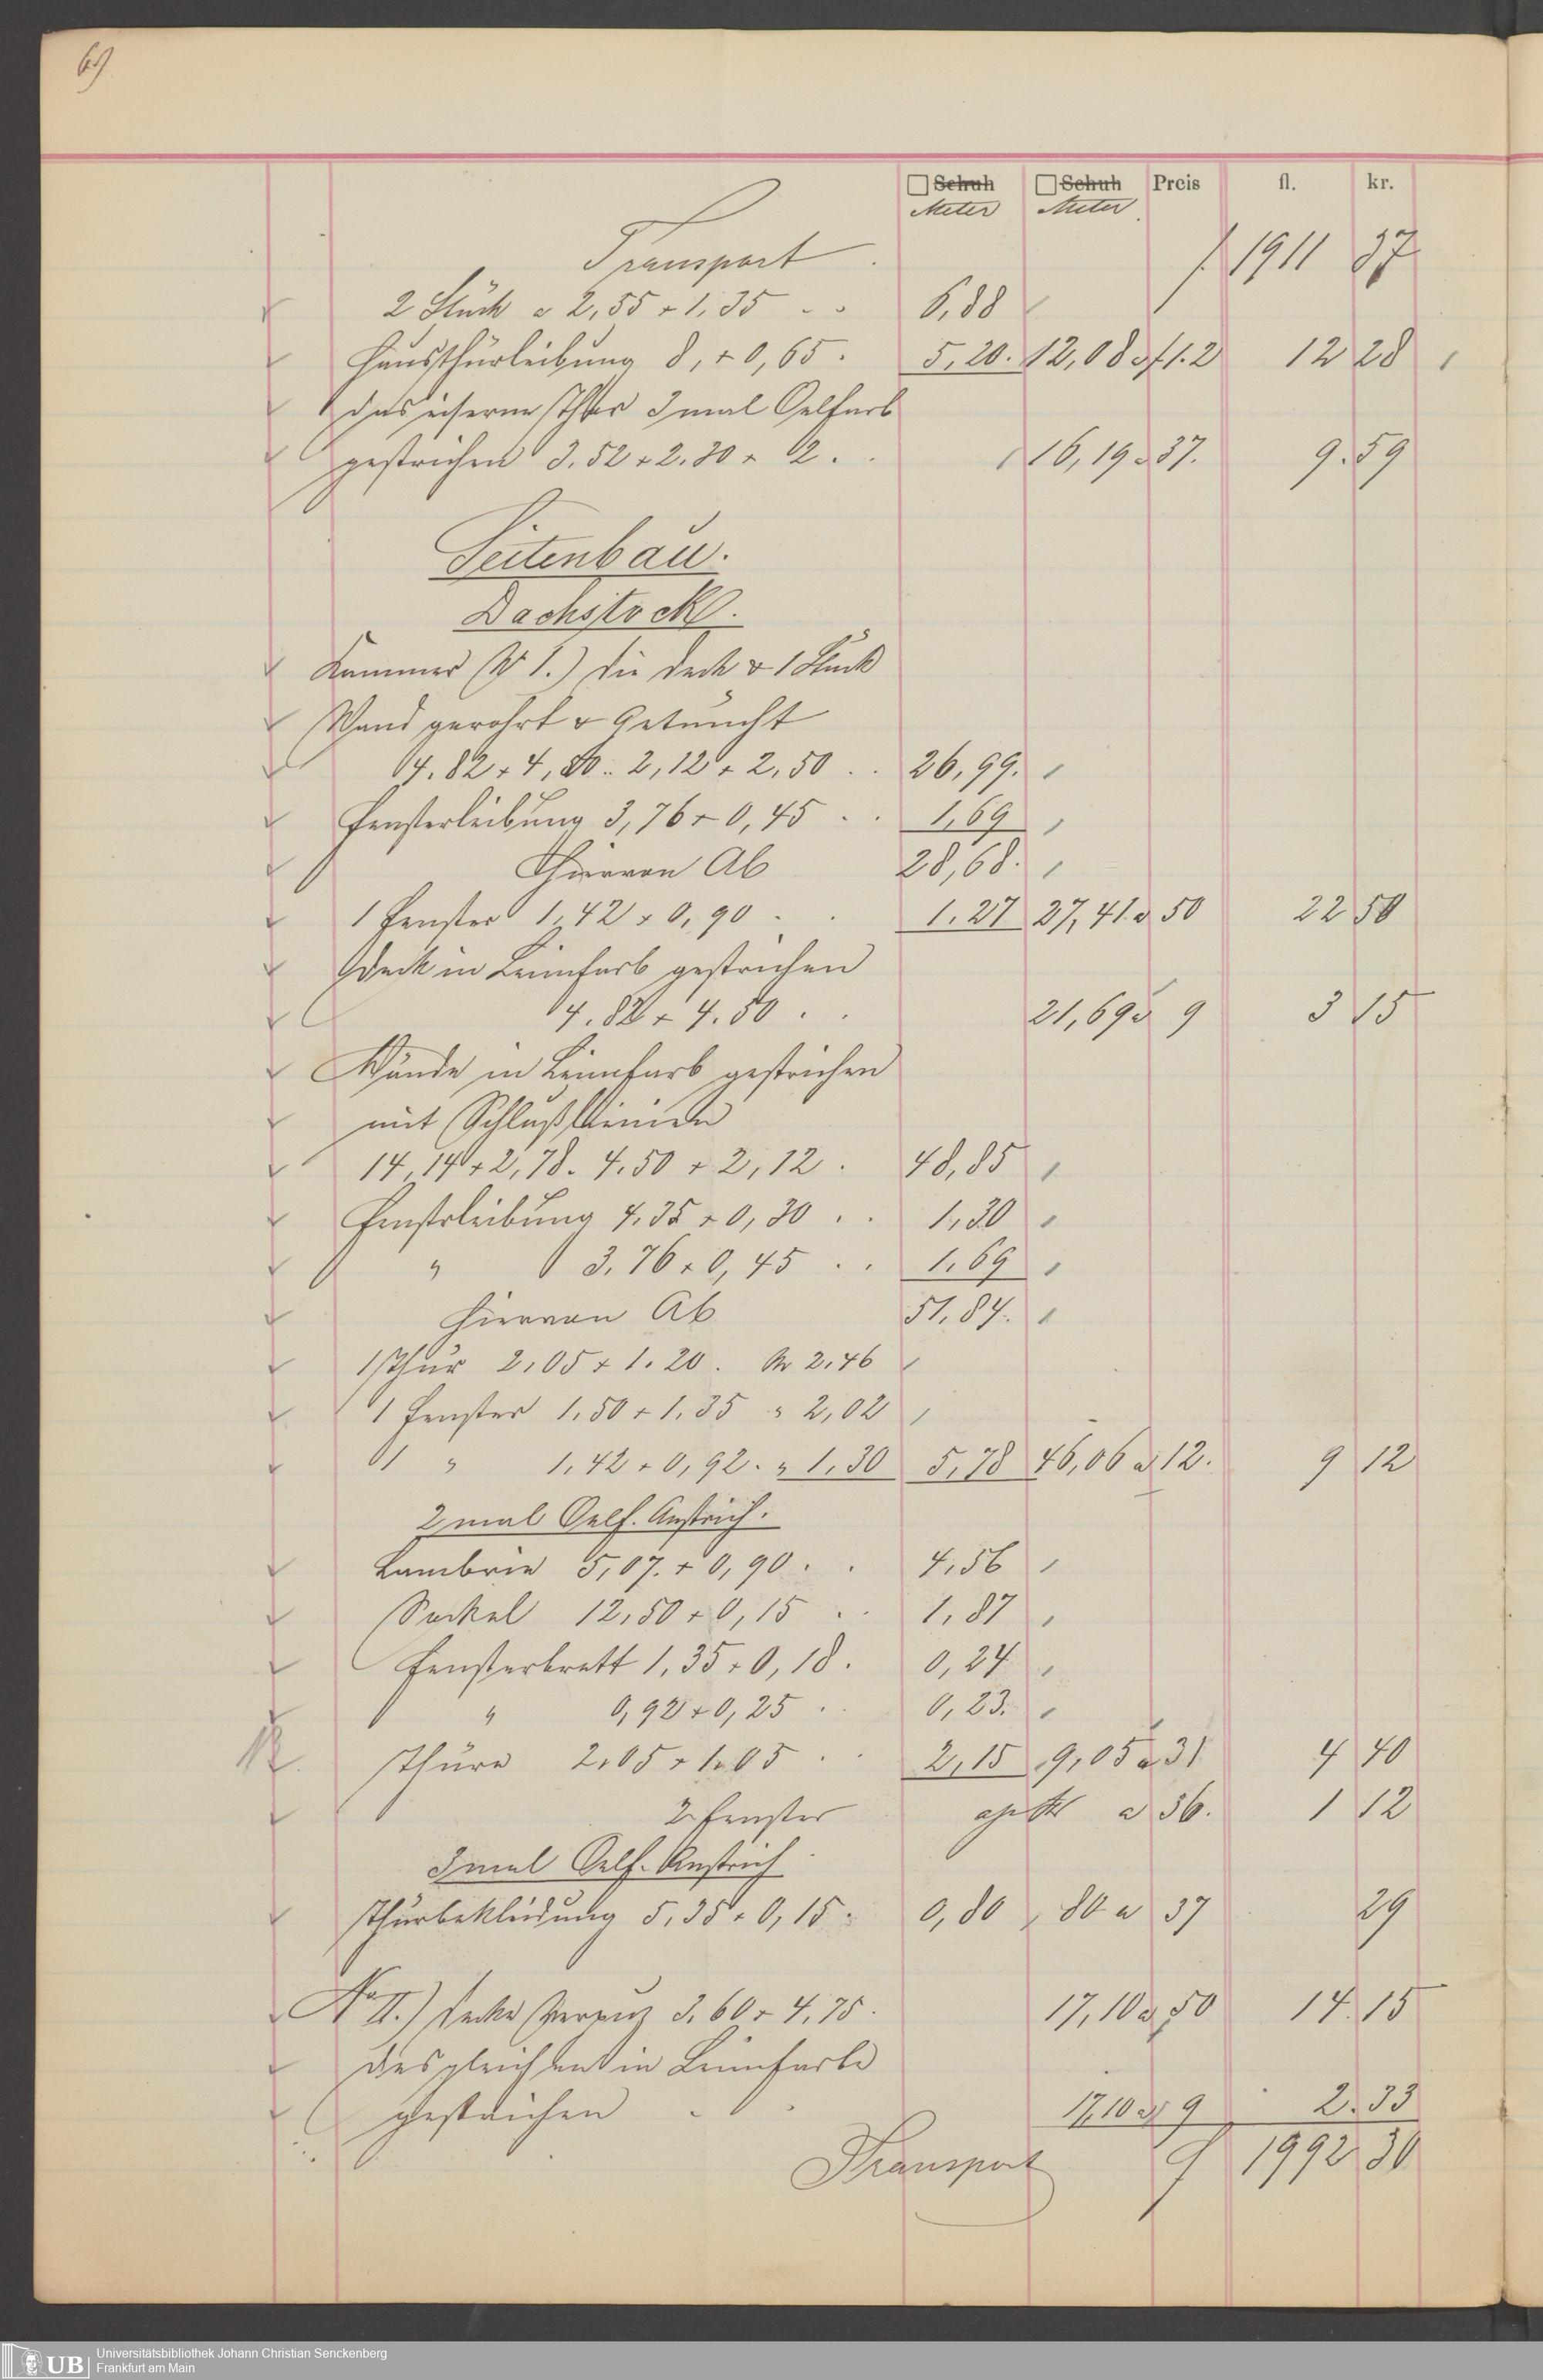 69
□ Schuh □ Schuh Preis fl. kr.
Meter Meter
Transport . f 1911 37
2 Stück a 2,55 + 1,35 . . 6,88
Hausthürleibung 8, + 0,65 . 5,20. 12,08 a f 1.2 12 28
das eiserne Thor 3 mal Oelfarb
gestrichen 3.52 + 2.30 + 2 . . 16,19 a 37. 9.59
Seitenbau.
Dachstock.
Kammer (N 1.) die Deck & 1 Stück
Wand gerohrt & Getüncht
4.82 + 4,50 .. 2,12 + 2,50 . . 26,99.
Fensterleibung 3,76 + 0,45 . . 1,69
Hiervon Ab 28,68.
1 Fenster 1,42 + 0,90 . . 1.27 27,41 a 50 22 50
Deck in Leimfarb gestrichen
4.82 + 4.50 . . 21,69 a 9 3 15
Wände in Leimfarb gestrichen
mit Schlußlinien
14,14 + 2,78. 4.50 + 2,12 . 48,85
Fensterleibung 4.35 + 0,30 . . 1,30
" 3.76 + 0,45 . . 1.69
Hiervon Ab 51.84.
1 Thür 2.05 + 1.20 . M 2.46
1 Fenster 1.50 + 1.35 " 2,02
1 " 1.42 + 0,92 . " 1,30 5,78 46,06 a 12. 9 12
2 mal Oelf. Anstrich.
Lambrie 5,07. + 0,90 . . 4,56
Sockel 12,50 + 0,15 . . 1,87
Fensterbrett 1,35 + 0,18 . 0,24
" 0,92 + 0,25 . . 0,23.
Thüre 2.05 + 1.05 . . 2,15 9,05 a 31 4 40
2 Fenster a 36. 1 12
3 mal Oelf. Anstrich
Thürbekleidung 5,35 + 0,15 . 0,80 , 80 a 37 29
No II.) Decke Verputz 3.60 + 4,75 . 17,10 a 50 14.15
desgleichen in Leimfarbe
gestrichen . . 17,10 a 9 2.33
Transport f 1992 30
UB Universitätsbibliothek Johann Christian Senckenberg
Frankfurt am Main